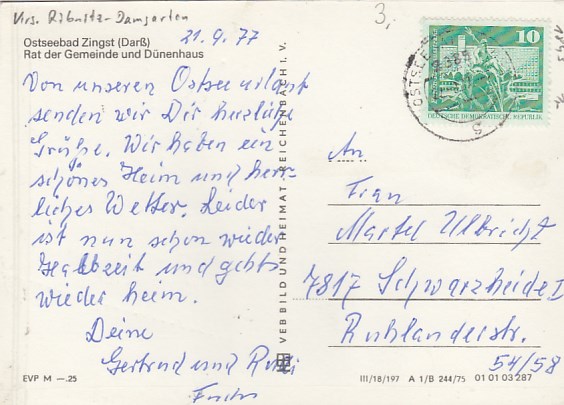 Krs. Ribnitz-Damgarten
Ostseebad Zingst (Darß)
Rat der Gemeinde und Dünenhaus
21.9.77
Von unseren Ostseeurlaub
senden wir Dir herzliche
Grüße. Wir haben ein
schönes Heim und herr-
liches Wetter. Leider
ist nun schon wieder
Halbzeit und gehts
wieder heim.
Deine
Gertrud und Rudi
Fuchs
EVP M —.25
VEB BILD UND HEIMAT REICHENBACH I. V.
3,
10
DEUTSCHE DEMOKRATISCHE REPUBLIK
OSTSEEB
An
Frau
Martel Ulbricht
7817 Schwarzheide I
Ruhlanderstr.
54/58
III/18/197 A 1/B 244/75 01 01 03 287